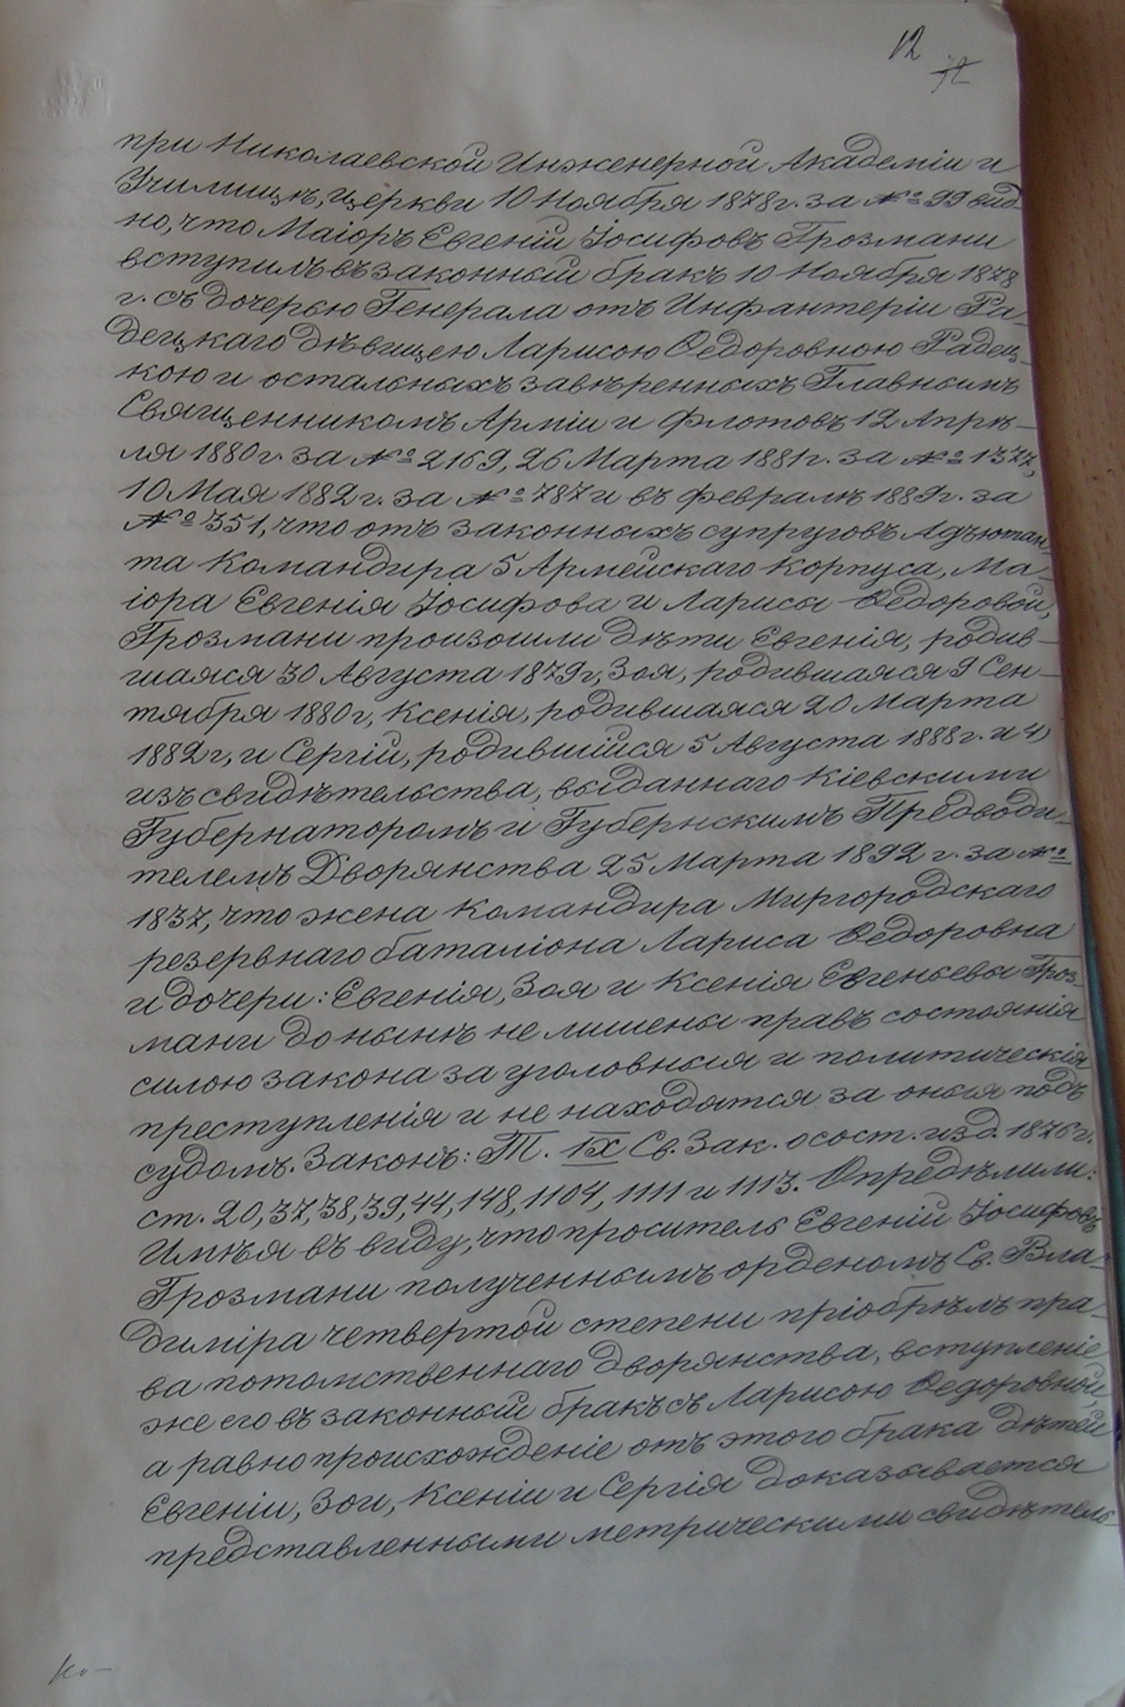 12
при Николаевской Инженерной Академіи и
Училищѣ, церкви 10 Ноября 1878 г. за № 99 вид-
но, что Маіоръ Евгеній Іосифовъ Грозмани
вступилъ въ законный бракъ 10 Ноября 1878
г. съ дочерью Генерала отъ Инфантеріи Ра-
децкаго дѣвицею Ларисою Ѳедоровною Радец-
кою и остальныхъ завѣренныхъ Главнымъ
Священникомъ Арміи и Флотовъ 12 Апрѣ-
ля 1880 г. за № 2169, 26 Марта 1881 г. за № 1377,
10 Мая 1882 г. за № 787 и въ Февралѣ 1889 г. за
№ 351, что отъ законныхъ супруговъ Адъютан-
та Командира 5 Армейскаго Корпуса, Ма-
іора Евгенія Іосифова и Ларисы Ѳедоровой,
Грозмани произошли дѣти Евгенія, родив-
шаяся 30 Августа 1879 г, Зоя, родившаяся 9 Сен-
тября 1880 г, Ксенія, родившаяся 20 Марта
1882 г, и Сергій, родившійся 5 Августа 1888 г. и 4)
изъ свидѣтельства, выданнаго Кіевскими
Губернаторомъ и Губернскимъ Предводи-
телемъ Дворянства 25 Марта 1892 г. за №
1837, что жена Командира Миргородскаго
резервнаго баталіона Лариса Ѳедоровна
и дочери: Евгенія, Зоя и Ксенія Евгеньевы Гроз-
мани до нынѣ не лишены правъ состоянія
силою закона за уголовныя и политическія
преступленія и не находятся за оныя подъ
судомъ. Законъ: Т. IX Св. Зак. о сост. изд. 1876 г.
ст. 20, 37, 38, 39, 44, 148, 1104, 1111 и 1113. Опредѣлили:
Имѣя въ виду, что проситель Евгеній Іосифовъ
Грозмани полученнымъ орденомъ Св. Вла-
диміра четвертой степени пріобрѣлъ пра-
ва потомственнаго дворянства, вступленіе
же его въ законный бракъ съ Ларисою Ѳедоровной,
а равно происхожденіе отъ этого брака дѣтей
Евгеніи, Зои, Ксеніи и Сергія доказывается
представленными метрическими свидѣтель-